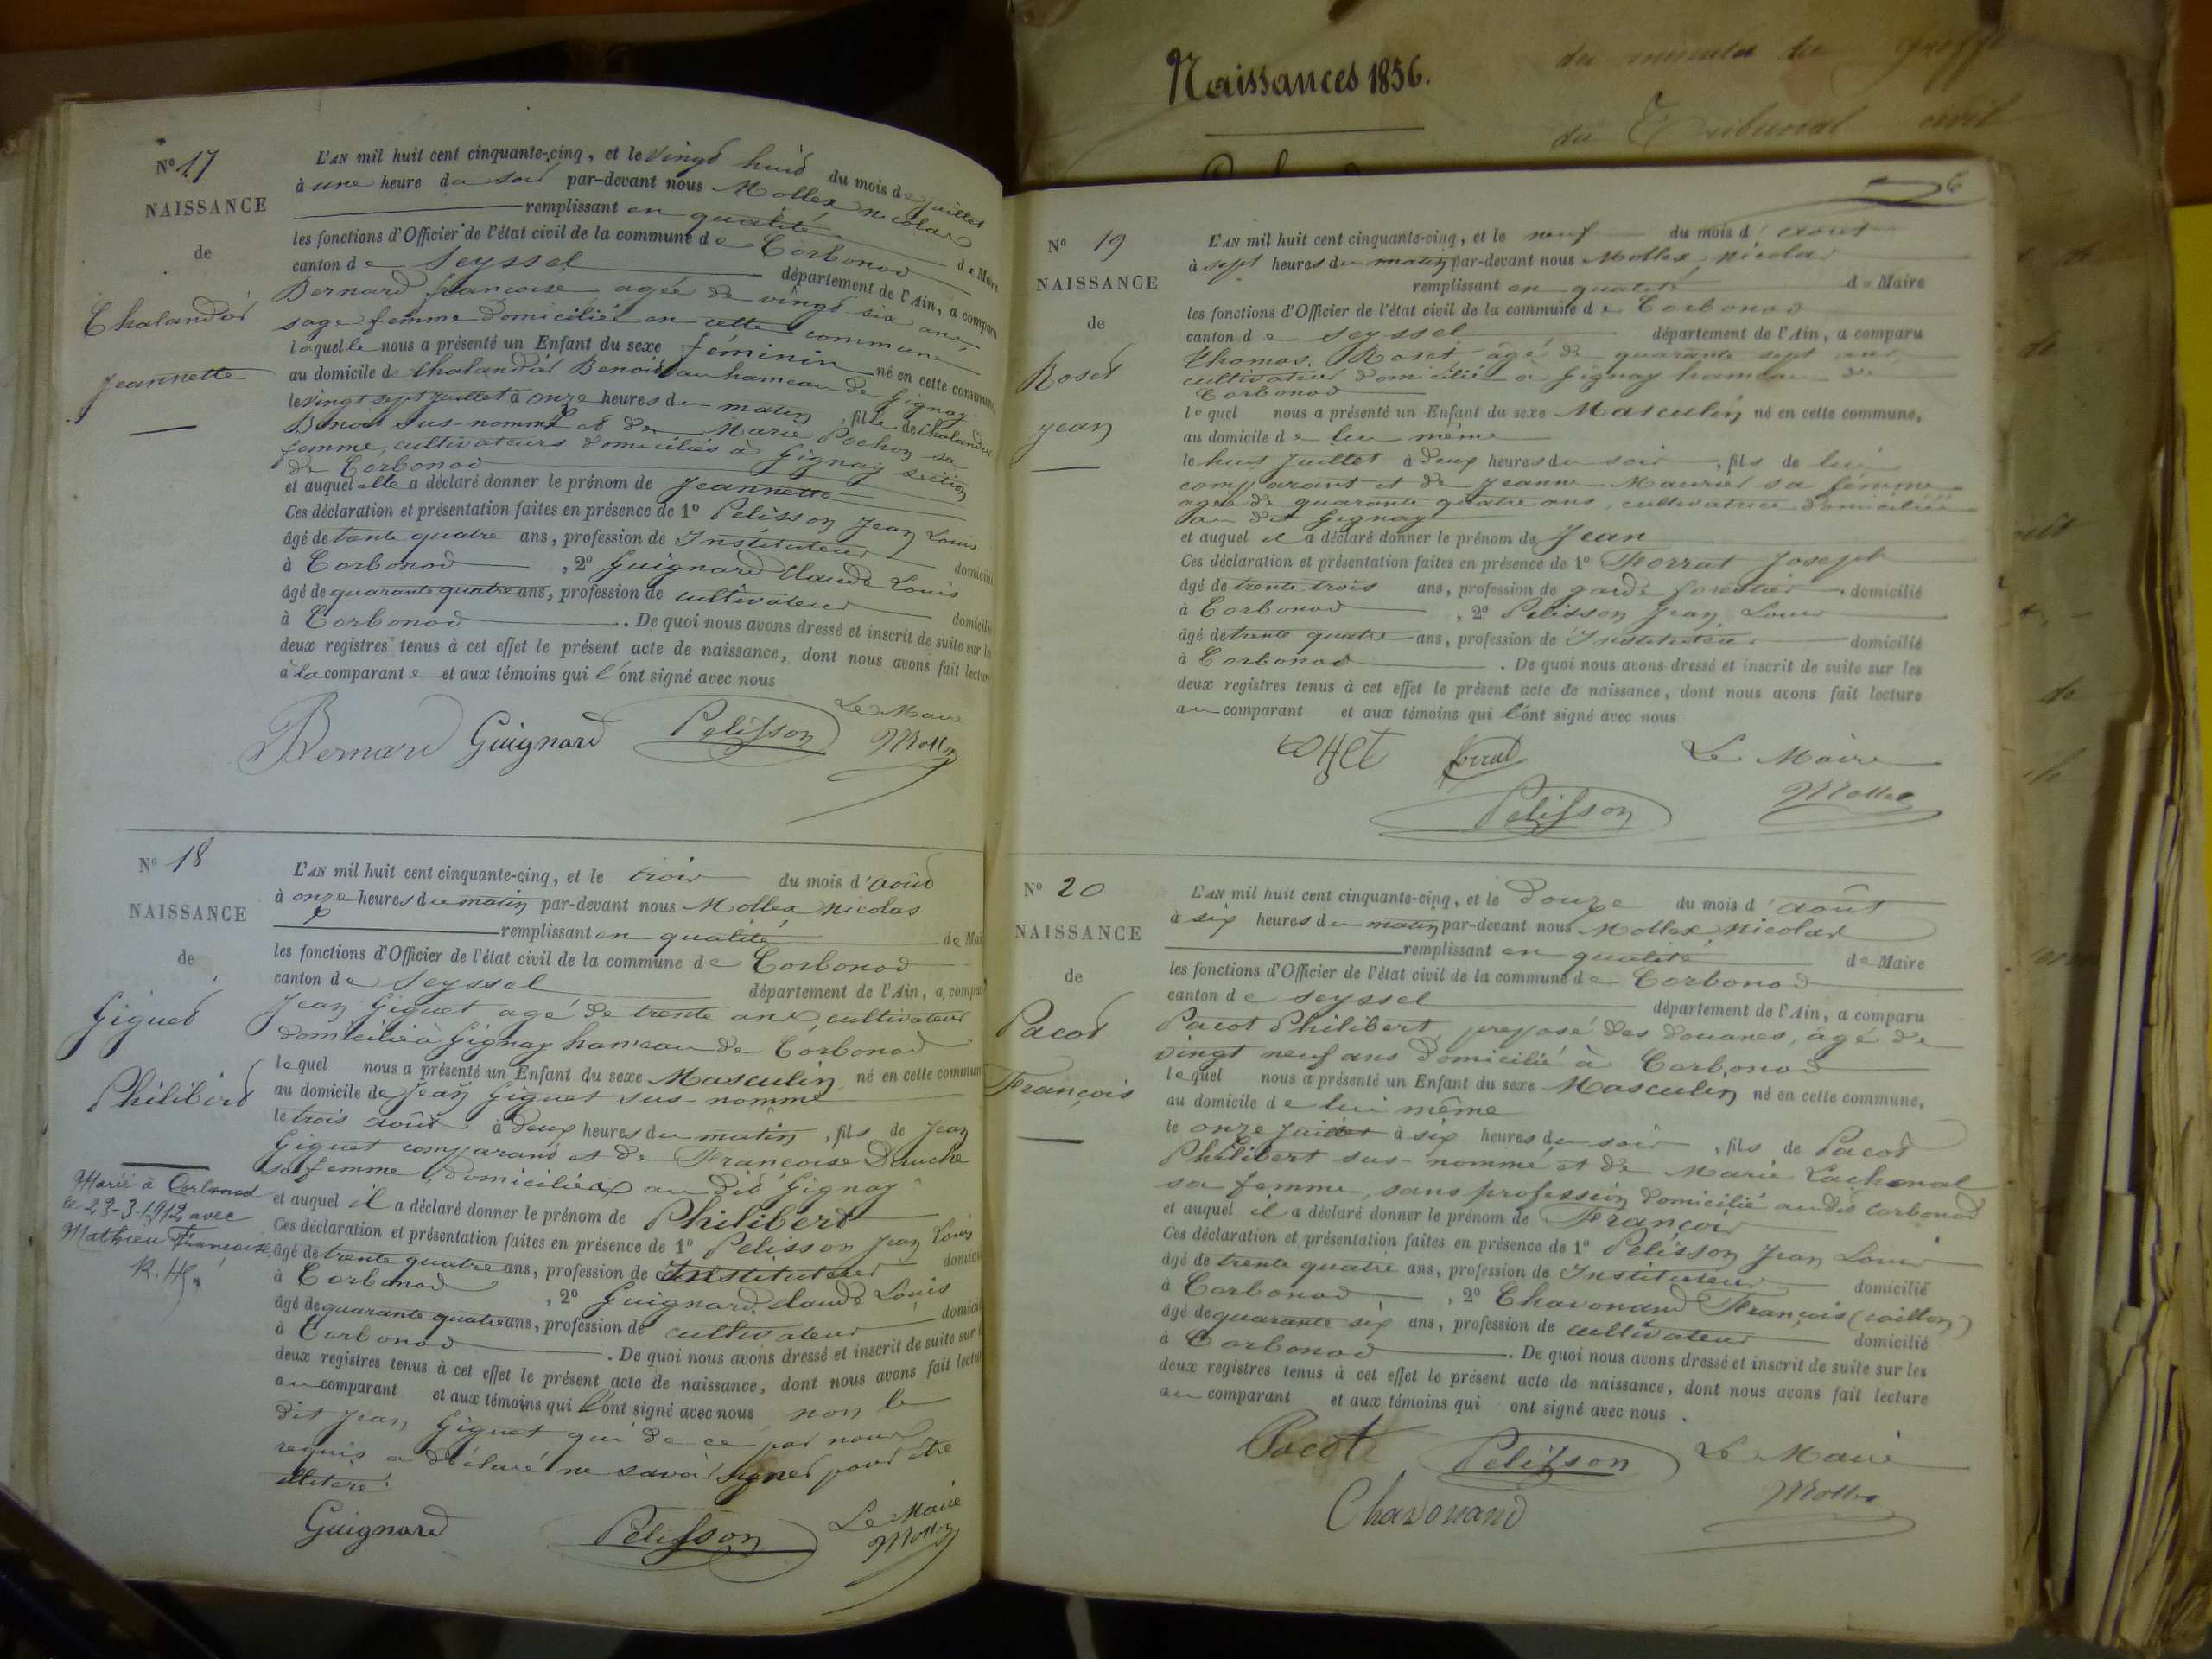 Naissances 1856.
du Tribunal civil
N° 17
NAISSANCE
de
Chalandod
Jeannette
L'AN mil huit cent cinquante-cinq, et le vingt huit du mois de juillet
à une heure du soir par-devant nous Mollex Nicolas
remplissant en qualité de Maire
les fonctions d'Officier de l'état civil de la commune de Corbonod
canton de Seyssel département de l'Ain, a comparu
Bernard françoise agée de vingt six ans,
sage femme domiciliée en cette commune
laquelle nous a présenté un Enfant du sexe féminin né en cette commune,
au domicile de Chalandod Benoit au hameau de Gignay
le vingt sept juillet à onze heures du matin, fille de Chalandod
Benoit sus-nommé et de Marie Pochon sa
femme, cultivateurs domiciliés à Gignay section
de Corbonod
et auquel elle a déclaré donner le prénom de Jeannette
Ces déclaration et présentation faites en présence de 1° Pelisson Jean Louis
âgé de trente quatre ans, profession de Instituteur domicilié
à Corbonod, 2° Guignard Claude Louis
âgé de quarante quatre ans, profession de cultivateur domicilié
à Corbonod. De quoi nous avons dressé et inscrit de suite sur les
deux registres tenus à cet effet le présent acte de naissance, dont nous avons fait lecture
à la comparante et aux témoins qui l'ont signé avec nous
Le Maire
Bernard Guignard Pelisson Mollex
N° 18
NAISSANCE
de
Giguet
Philibert
L'AN mil huit cent cinquante-cinq, et le trois du mois d'août
à onze heures du matin par-devant nous Mollex Nicolas
remplissant en qualité de Maire
les fonctions d'Officier de l'état civil de la commune de Corbonod
canton de Seyssel département de l'Ain, a comparu
Jean Giguet agé de trente ans, cultivateur
domicilié à Gignay hameau de Corbonod
lequel nous a présenté un Enfant du sexe Masculin né en cette commune
au domicile de Jean Giguet sus-nommé
le trois août à deux heures du matin, fils de Jean
Giguet comparant et de Françoise Druche
sa femme, domiciliés au dit Gignay
et auquel il a déclaré donner le prénom de Philibert
Ces déclaration et présentation faites en présence de 1° Pelisson Jean Louis
âgé de trente quatre ans, profession de Instituteur domicilié
à Corbonod, 2° Guignard Claude Louis
âgé de quarante quatre ans, profession de cultivateur domicilié
à Corbonod. De quoi nous avons dressé et inscrit de suite sur
deux registres tenus à cet effet le présent acte de naissance, dont nous avons fait lecture
au comparant et aux témoins qui l'ont signé avec nous non le
dit Jean Giguet qui de ce par nous
requis a déclaré ne savoir signer pour être
illiteré
Le Maire
Guignard Pelisson Mollex
Marié à Corbonod
le 23-3-1912 avec
Mathieu Françoise
6
N° 19
NAISSANCE
de
Roset
Jean
L'AN mil huit cent cinquante-cinq, et le neuf du mois d'août
à sept heures du matin par-devant nous Mollex Nicolas
remplissant en qualité de Maire
les fonctions d'Officier de l'état civil de la commune de Corbonod
canton de Seyssel département de l'Ain, a comparu
Thomas Roset, âgé de quarante sept ans
cultivateur domicilié à Gignay hameau de
Corbonod
lequel nous a présenté un Enfant du sexe Masculin né en cette commune,
au domicile de lui même
le huit juillet à deux heures du soir, fils de lui
comparant et de Jeanne Maurier sa femme
agée de quarante quatre ans, cultivatrice domiciliée
au dit Gignay
et auquel il a déclaré donner le prénom de Jean
Ces déclaration et présentation faites en présence de 1° Forrat Joseph
âgé de trente trois ans, profession de garde forestier, domicilié
à Corbonod, 2° Pelisson Jean Louis
âgé de trente quatre ans, profession de Instituteur domicilié
à Corbonod. De quoi nous avons dressé et inscrit de suite sur les
deux registres tenus à cet effet le présent acte de naissance, dont nous avons fait lecture
au comparant et aux témoins qui l'ont signé avec nous
Forrat Le Maire
Pelisson Mollex
N° 20
NAISSANCE
de
Pacot
François
L'AN mil huit cent cinquante-cinq, et le douze du mois d'août
à six heures du matin par-devant nous Mollex Nicolas
remplissant en qualité de Maire
les fonctions d'Officier de l'état civil de la commune de Corbonod
canton de Seyssel département de l'Ain, a comparu
Pacot Philibert, préposé des douanes, âgé de
vingt neuf ans domicilié à Corbonod
lequel nous a présenté un Enfant du sexe Masculin né en cette commune,
au domicile de lui même
le onze juillet à six heures du soir, fils de Pacot
Philibert sus-nommé et de Marie Lachenal
sa femme, sans profession domicilié au dit Corbonod
et auquel il a déclaré donner le prénom de François
Ces déclaration et présentation faites en présence de 1° Pelisson Jean Louis
âgé de trente quatre ans, profession de Instituteur domicilié
à Corbonod, 2° Chavonand François (caillon)
âgé de quarante six ans, profession de cultivateur domicilié
à Corbonod. De quoi nous avons dressé et inscrit de suite sur les
deux registres tenus à cet effet le présent acte de naissance, dont nous avons fait lecture
au comparant et aux témoins qui ont signé avec nous.
Pacot Pelisson Le Maire
Chavonand Mollex